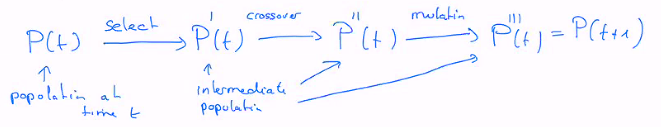 P(t) select P'(t) crossover P''(t) mutation P'''(t) = P(t+1)
population at
time t
intermediate
population